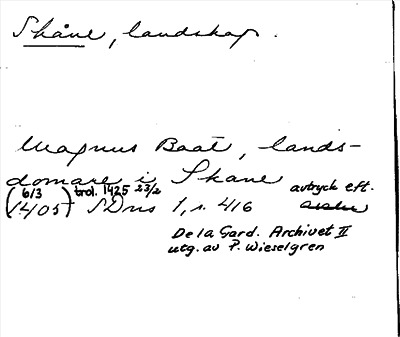 Skåne, landskap.
Magnus Baat, lands-
domare i Skåne
6/3 trol. 1425 23/2 avtryck eft.
(1405) SDns 1, s. 416
De la Gard. Archivet II
utg. av P. Wieselgren